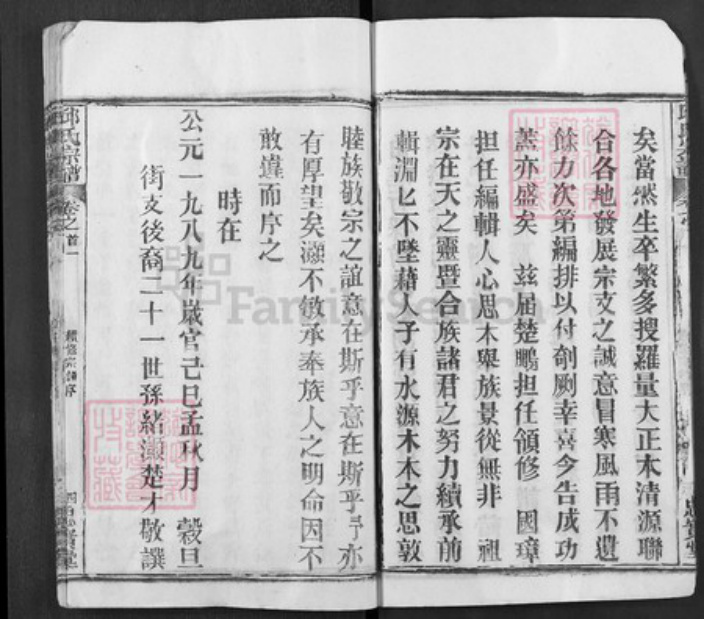 矣當然生卒繁多搜羅量大正本清源聯
合各地發展宗支之誠意冒寒風雨不遺
餘力次第編排以付剞劂幸喜今告成功
蓋亦盛矣 茲届楚鵬担任領修 國璋
担任編輯人心思木舉族景從無非 祖
宗在天之靈暨合族諸君之努力續承前
輯淵匕不墜藉人子有水源木本之思敦
睦族敬宗之誼意在斯乎意在斯乎予亦
有厚望矣灝不敏承奉族人之明命因不
敢違而序之
時在
公元一九八九年歲官己巳孟秋月 穀旦
街支後裔二十一世孫緒灝楚才敬譔
邱氏宗譜 卷之首一
續修宗譜序
FamilySearch